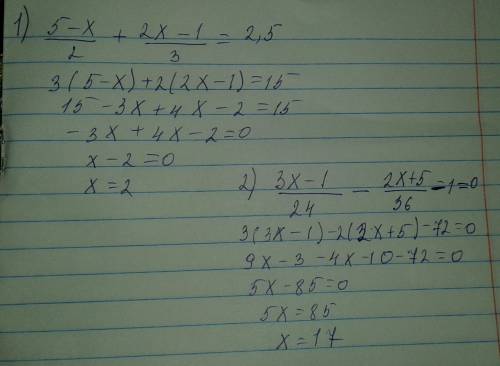 1) (5-x)/2 + (2x-1)/3 = 2,5
3(5-x)+2(2x-1)=15
15-3x+4x-2=15
-3x+4x-2=0
x-2=0
x=2
2) (3x-1)/24 - (2x+5)/36 -1=0
3(3x-1)-2(2x+5)-72=0
9x-3-4x-10-72=0
5x-85=0
5x=85
x=17